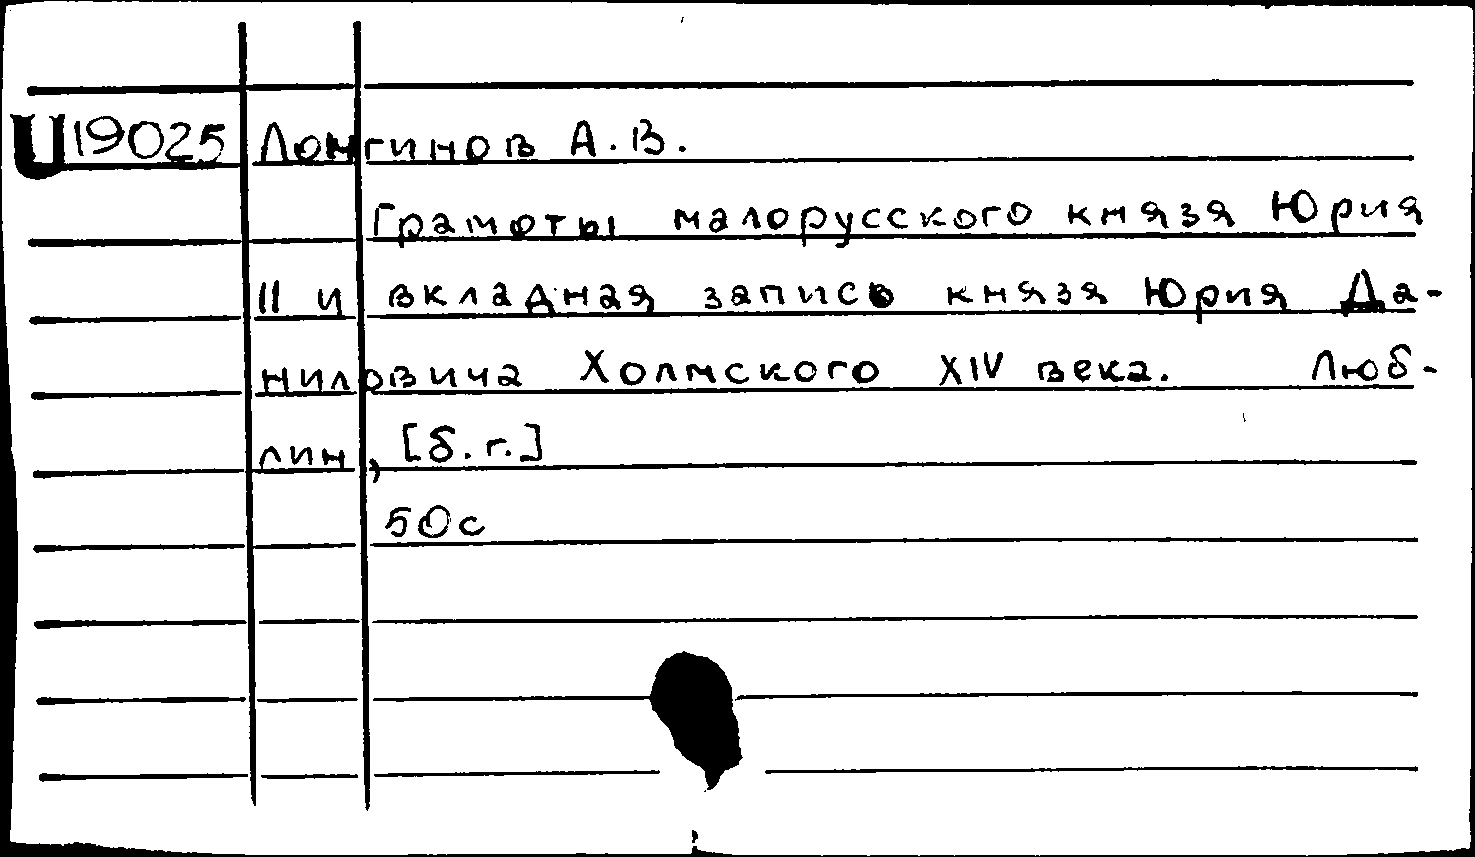 U19025 Лонгинов А.В.
Грамоты малорусского князя Юрия
II и вкладная запись князя Юрия Да-
ниловича Холмского XIV века. Люб-
лин, [б.г.]
50с